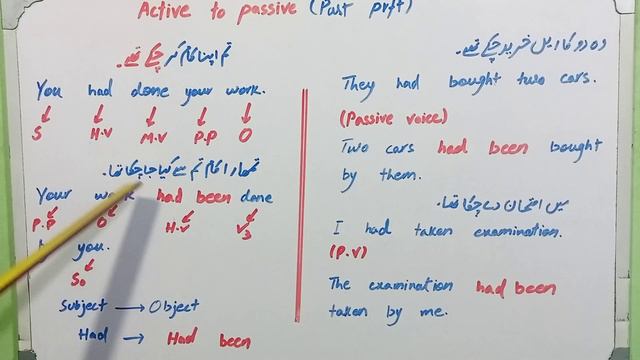 Active to passive (Past prft)
تم اپنا کام کر چکے تھے۔
You had done your work.
S H.V M.V P.P O
تمہارا کام تم سے کیا جا چکا تھا۔
Your work had been done
P.P O H.V V3
you.
So
Subject → Object
Had → Had been
وہ دو کاریں خرید چکے تھے۔
They had bought two cars.
(Passive voice)
Two cars had been bought
by them.
میں امتحان دے چکا تھا۔
I had taken examination.
(P.V)
The examination had been
taken by me.